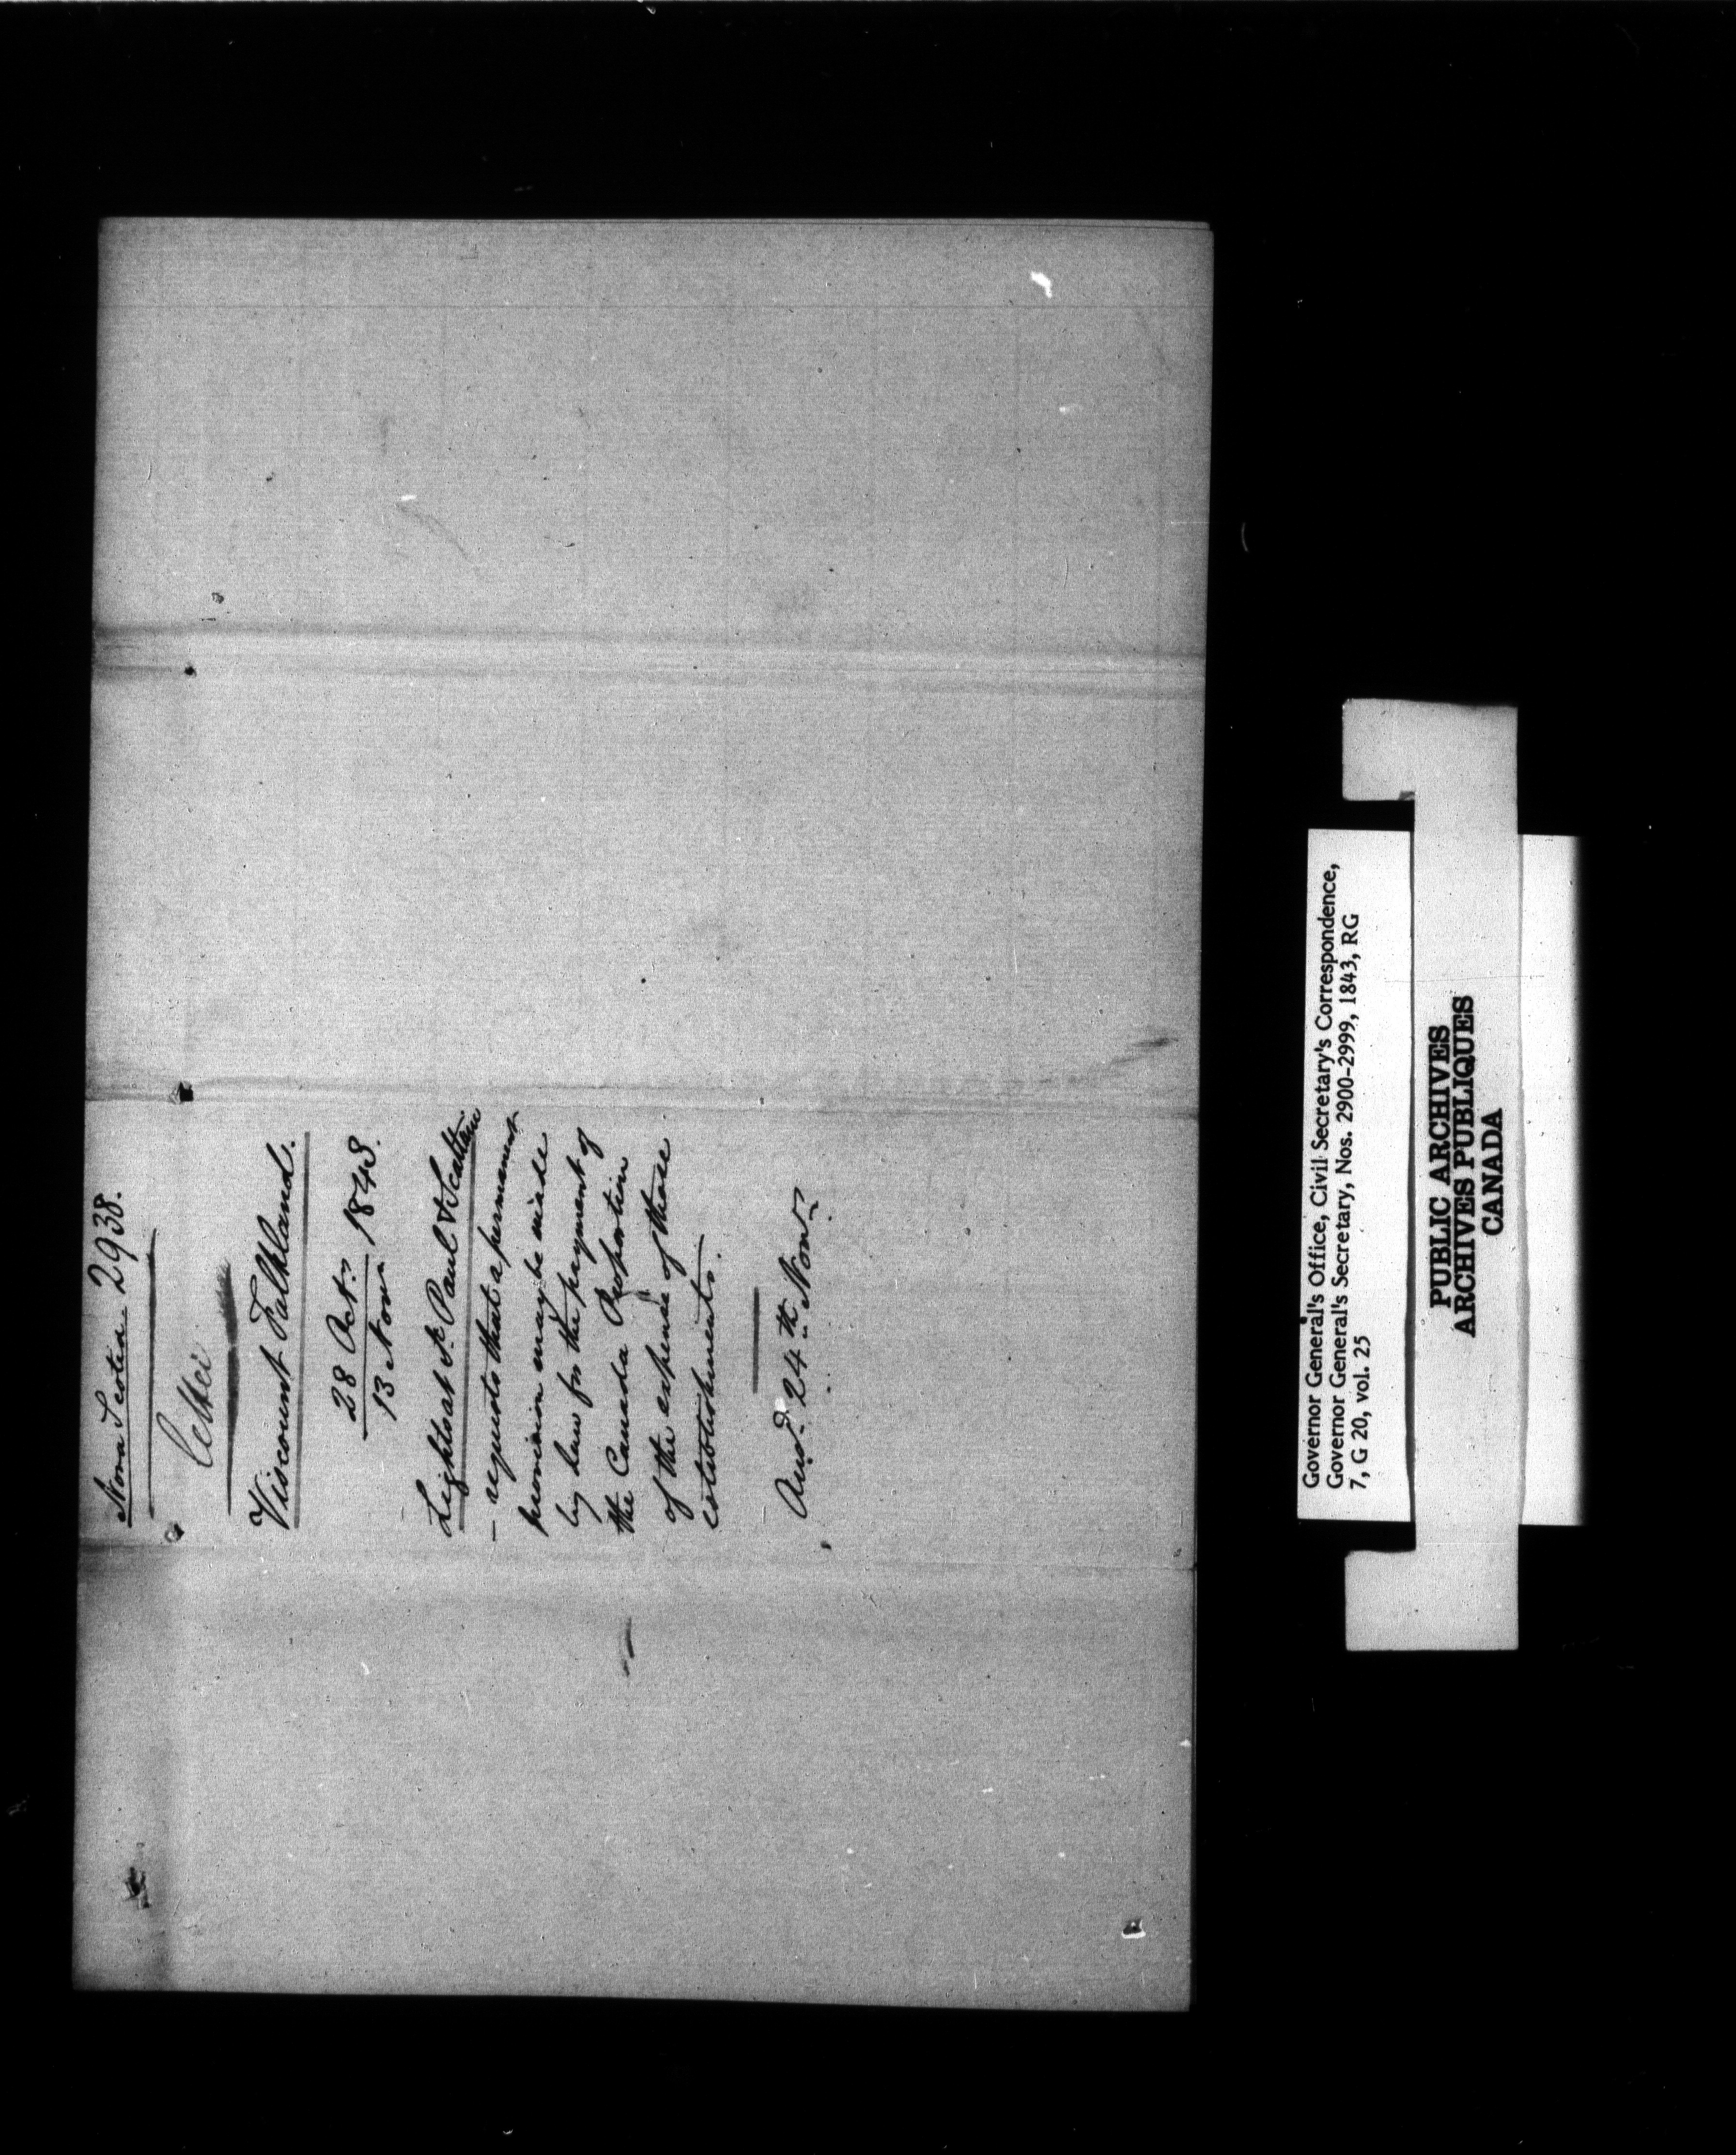 Nova Scotia 2938.
Viscount Falkland.
28 Octr. 1843.
13 Novr
Lights at St. Paul & Scatterie
– requests that a permanent
provision may be made
by law for the payment of
the Canada Proportion
of the expense of these
establishments.
Ansd. 24th Novr.
Governor General's Office, Civil Secretary's Correspondence,
Governor General's Secretary, Nos. 2900-2999, 1843, RG
7, G 20, vol. 25
PUBLIC ARCHIVES
ARCHIVES PUBLIQUES
CANADA